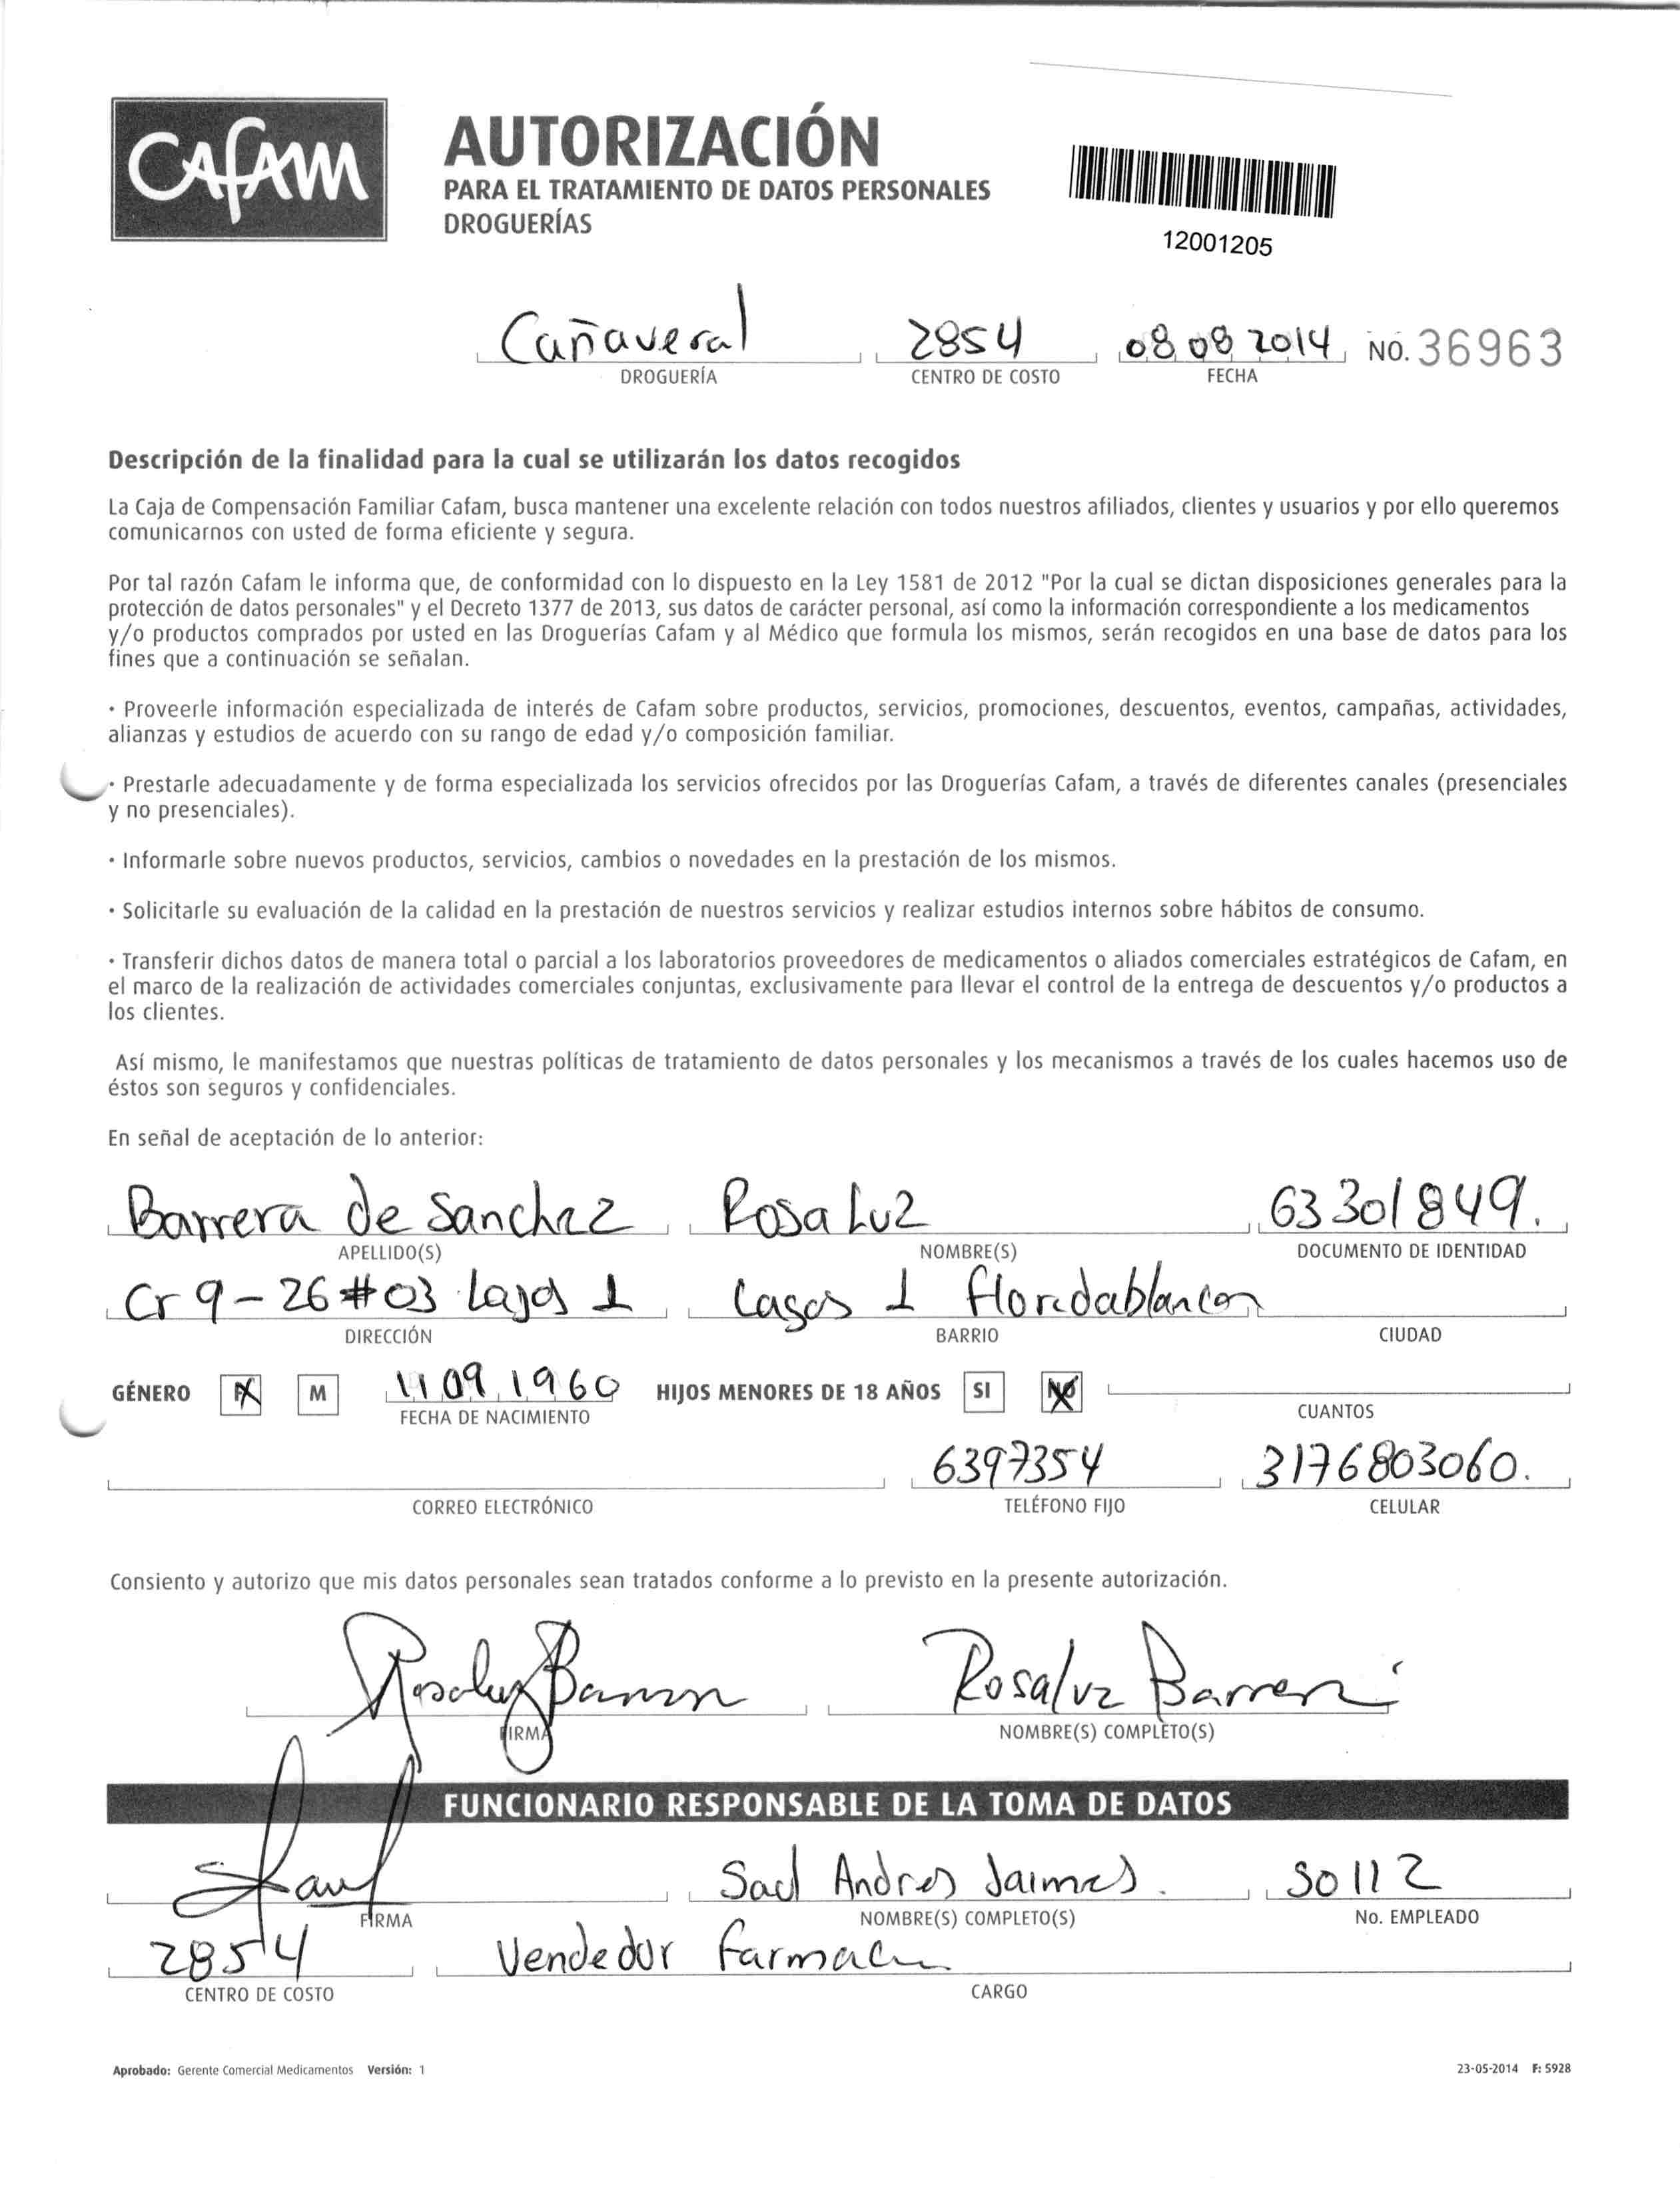 CAFAM
AUTORIZACIÓN
PARA EL TRATAMIENTO DE DATOS PERSONALES
DROGUERÍAS
12001205
Cañaveral 2854 08 08 2014 NO. 36963
DROGUERÍA CENTRO DE COSTO FECHA
Descripción de la finalidad para la cual se utilizarán los datos recogidos
La Caja de Compensación Familiar Cafam, busca mantener una excelente relación con todos nuestros afiliados, clientes y usuarios y por ello queremos
comunicarnos con usted de forma eficiente y segura.
Por tal razón Cafam le informa que, de conformidad con lo dispuesto en la Ley 1581 de 2012 "Por la cual se dictan disposiciones generales para la
protección de datos personales" y el Decreto 1377 de 2013, sus datos de carácter personal, así como la información correspondiente a los medicamentos
y/o productos comprados por usted en las Droguerías Cafam y al Médico que formula los mismos, serán recogidos en una base de datos para los
fines que a continuación se señalan.
· Proveerle información especializada de interés de Cafam sobre productos, servicios, promociones, descuentos, eventos, campañas, actividades,
alianzas y estudios de acuerdo con su rango de edad y/o composición familiar.
· Prestarle adecuadamente y de forma especializada los servicios ofrecidos por las Droguerías Cafam, a través de diferentes canales (presenciales
y no presenciales).
· Informarle sobre nuevos productos, servicios, cambios o novedades en la prestación de los mismos.
· Solicitarle su evaluación de la calidad en la prestación de nuestros servicios y realizar estudios internos sobre hábitos de consumo.
· Transferir dichos datos de manera total o parcial a los laboratorios proveedores de medicamentos o aliados comerciales estratégicos de Cafam, en
el marco de la realización de actividades comerciales conjuntas, exclusivamente para llevar el control de la entrega de descuentos y/o productos a
los clientes.
Así mismo, le manifestamos que nuestras políticas de tratamiento de datos personales y los mecanismos a través de los cuales hacemos uso de
éstos son seguros y confidenciales.
En señal de aceptación de lo anterior:
Barrera de Sanchez Rosa Luz 63301849.
APELLIDO(S) NOMBRE(S) DOCUMENTO DE IDENTIDAD
Cr 9-26 #03 Lagos 1 Lagos 1 Floridablanca
DIRECCIÓN BARRIO CIUDAD
GÉNERO F M 11 09 1960 HIJOS MENORES DE 18 AÑOS SI NO
FECHA DE NACIMIENTO CUANTOS
6397354 3176803060.
CORREO ELECTRÓNICO TELÉFONO FIJO CELULAR
Consiento y autorizo que mis datos personales sean tratados conforme a lo previsto en la presente autorización.
Rosaluz Barrera Rosaluz Barrera
FIRMA NOMBRE(S) COMPLETO(S)
FUNCIONARIO RESPONSABLE DE LA TOMA DE DATOS
Saul Andres Jaimes. 30112
FIRMA NOMBRE(S) COMPLETO(S) No. EMPLEADO
2854 Vendedor
CENTRO DE COSTO CARGO
Aprobado: Gerente Comercial Medicamentos Versión: 1 23-05-2014 F: 5928